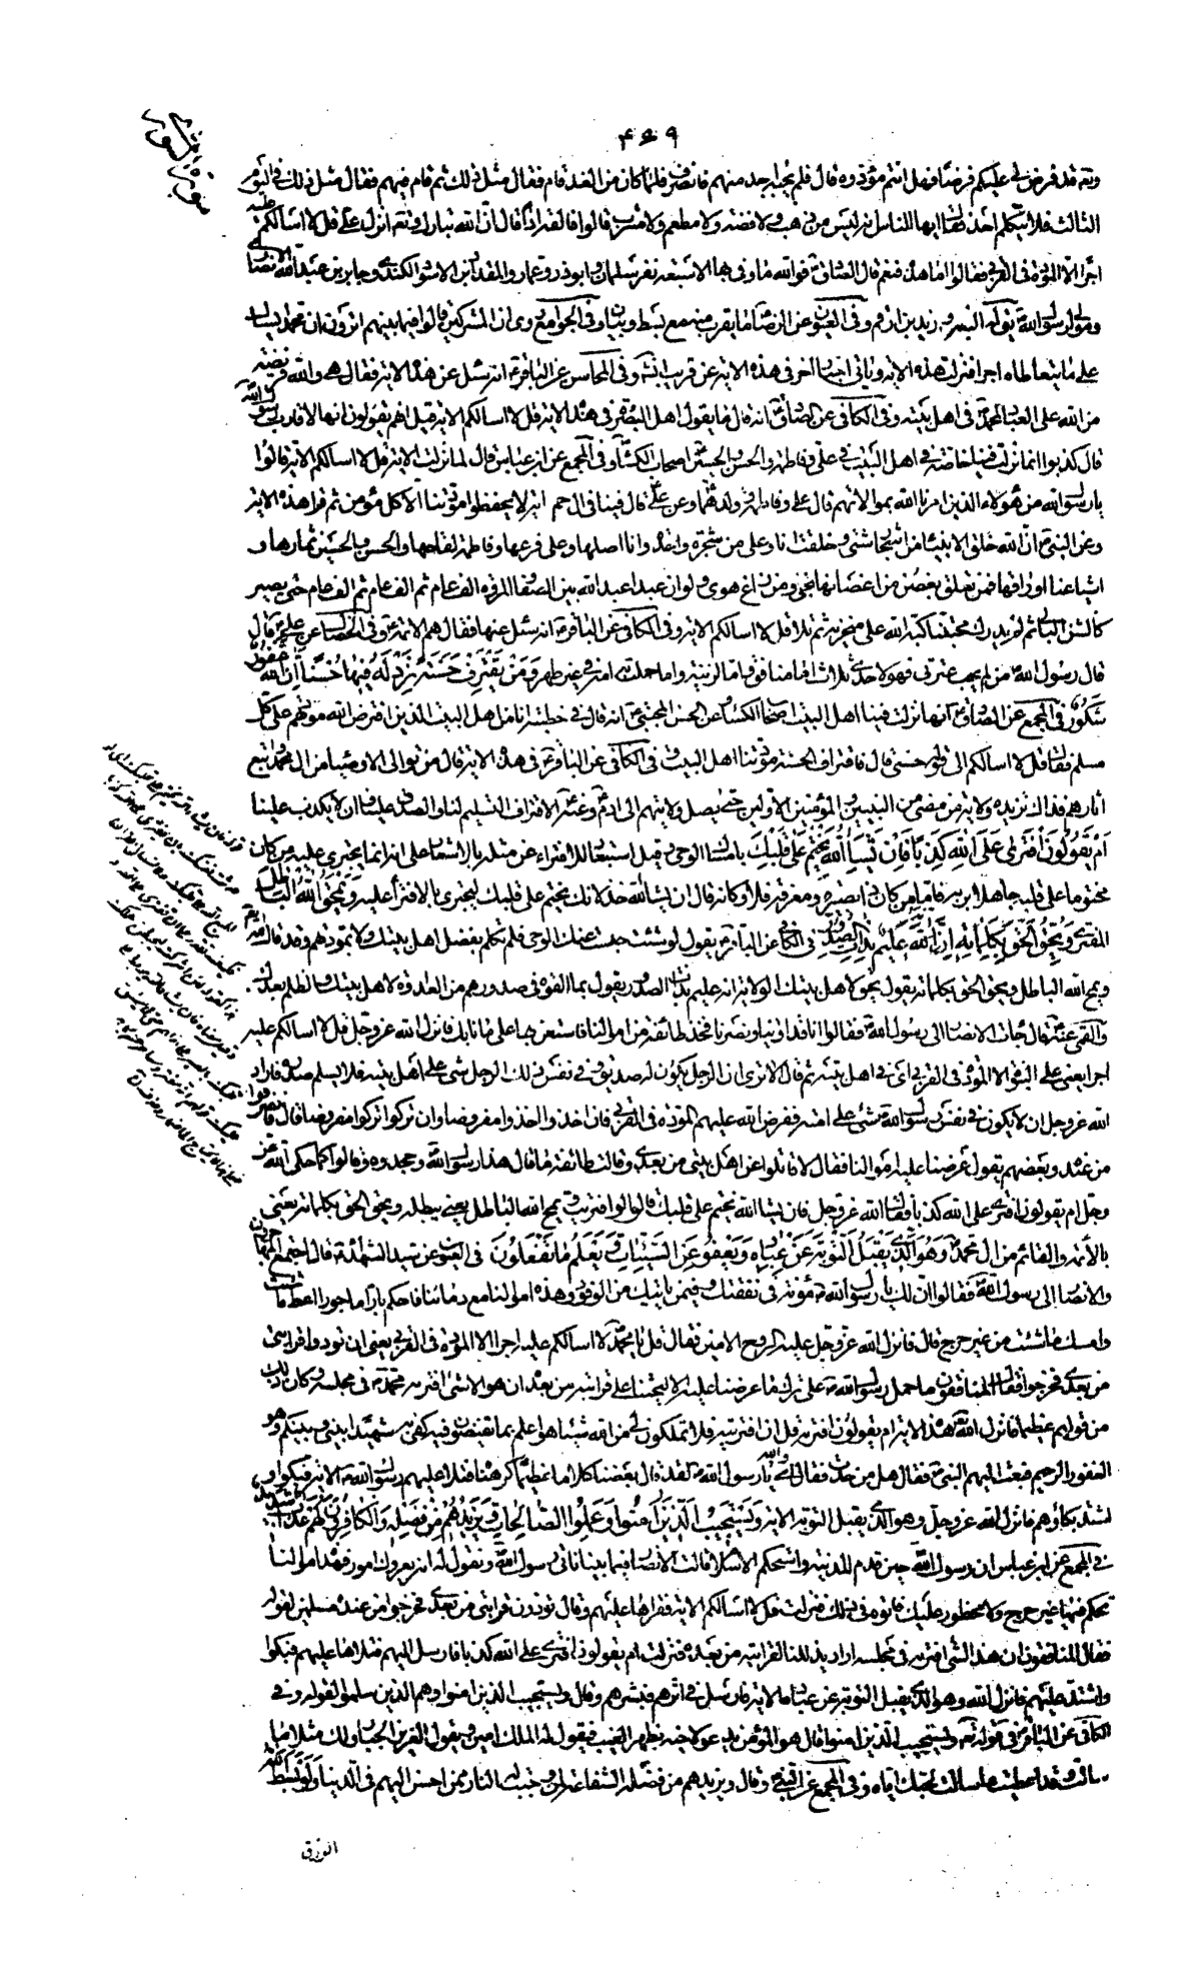 ۴۶۹
سورة الشورى
وتعالى قد فرض لي عليكم فرضا فهل انتم مؤدوه قال فلم يجبه احد منهم فانصرف فلما كان من الغد قام فقال مثل ذلك ثم قام فيهم فقال مثل ذلك في اليوم
الثالث فلم يتكلم احد فقال ايها الناس انه ليس من ذهب ولا فضة ولا مطعم ولا مشرب قالوا فالقه اذا قال ان الله تبارك وتعالى انزل علي قل لا اسالكم عليه
اجرا الا المودة في القربى فقالوا اما هذه فنعم قال الصادق فوالله ما وفى بها الا سبعة نفر سلمان وابو ذر وعمار والمقداد بن الاسود الكندي وجابر بن عبد الله الانصاري
ومولى لرسول الله يقال له البست وزيد بن ارقم وفي العيون عن الرضا ما يقرب منه مع بسط وبيان وفي الجوامع روى ان المشركين قالوا فيما بينهم اترون ان محمدا يسال
على ما يتعاطاه اجرا فنزلت هذه الاية وياتي اخبار اخر في هذه الاية عن قريب انشاء الله وفي المحاسن عن الباقر انه سئل عن هذه الاية فقال هي والله فريضة
من الله على العباد لمحمد في اهل بيته وفي الكافي عن الصادق انه قال ما يقول اهل البصرة في هذه الاية قل لا اسالكم الاية قيل انهم يقولون انها لاقارب رسول الله
قال كذبوا انما نزلت فينا خاصة في اهل البيت في علي وفاطمة والحسن والحسين اصحاب الكساء وفي المجمع عن ابن عباس قال لما نزلت الاية قل لا اسالكم الاية قالوا
يا رسول الله من هؤلاء الذين امرنا الله بموالاتهم قال علي وفاطمة وولدهما وعن علي قال فينا في ال حم اية لا يحفظ مودتنا الا كل مؤمن ثم قرا هذه الاية
وعن النبي ان الله خلق الانبياء من اشجار شتى وخلقت انا وعلي من شجرة واحدة فانا اصلها وعلي فرعها وفاطمة لقاحها والحسن والحسين ثمارها و
اشياعنا اوراقها فمن تعلق بغصن من اغصانها نجى ومن زاغ هوى ولو ان عبدا عبد الله بين الصفا والمروة الف عام ثم الف عام ثم الف عام حتى يصير
كالشن البالي ثم لم يدرك محبتنا كبه الله على منخريه ثم تلا قل لا اسالكم الاية وفي الكافي عن الباقر انه سئل عنها فقال هم الائمة وفي الخصال عن علي قال
قال رسول الله من لم يحب عترتي فهو لاحدى ثلاث اما منافق واما لزنية واما حملت به امه في غير طهر وَمَنْ يَقْتَرِفْ حَسَنَةً نَزِدْ لَهُ فِيهَا حُسْنًا اِنَّ اللهَ غَفُورٌ
شَكُورٌ في المجمع عن الصادق انها نزلت فينا اهل البيت اصحاب الكساء وعن الحسن المجتبى انه قال في خطبته انا من اهل البيت الذين افترض الله مودتهم على كل
مسلم فقال قل لا اسالكم الى قوله حسنى قال فاقتراف الحسنة مودتنا اهل البيت وفي الكافي عن الباقر في هذه الاية قال من توالى الاوصياء من ال محمد واتبع
اثارهم فذاك نزيده ولاية من مضى من النبيين والمؤمنين الاولين حتى يصل ولايتهم الى ادم وعنه الاقتراف التسليم لنا والصدق علينا وان لا يكذب علينا
اَمْ يَقُولُونَ افْتَرَى عَلَى اللهِ كَذِبًا فَاِنْ يَشَأِ اللهُ يَخْتِمْ عَلَى قَلْبِكَ بامساك الوحي قيل استبعاد للافتراء عن مثله بالاشعار على انه انما يجترئ عليه من كان
مختوما على قلبه جاهلا بربه فاما من كان ذا بصيرة ومعرفة فلا وكانه قال ان يشا الله خذلانك يختم على قلبك ليجترئ بالافتراء عليه وَيَمْحُ اللهُ الْبَاطِلَ
المفترى وَيُحِقُّ الْحَقَّ بِكَلِمَاتِهِ اِنَّهُ عَلِيمٌ بِذَاتِ الصُّدُورِ في الكافي عن الباقر يقول لو شئت حبست عنك الوحي فلم تكلم بفضل اهل بيتك ولا بمودتهم وقد قال الله
ويمح الله الباطل ويحق الحق بكلماته يقول يحق لاهل بيتك الولاية انه عليم بذات الصدور يقول بما القوه في صدورهم من العداوة لاهل بيتك والظلم بعدك
والقمي عنه قال جاءت الانصار الى رسول الله فقالوا انا قد اوينا ونصرنا فخذ طائفة من اموالنا فاستعن بها على ما نابك فانزل الله عز وجل قل لا اسالكم عليه
اجرا يعني على النبوة الا المودة في القربى اي في اهل بيته ثم قال الا ترى ان الرجل يكون له صديق وفي نفس ذلك الرجل شيء على اهل بيته فلا يسلم صدره فاراد
الله عز وجل ان لا يكون في نفس رسول الله شيء على امته ففرض الله عليهم المودة في القربى فان اخذوا اخذوا مفروضا وان تركوا تركوا مفروضا قال فانصرفوا
من عنده وبعضهم يقول عرضنا عليه اموالنا فقال لا قاتلوا عن اهل بيتي من بعدي وقالت طائفة ما قال هذا رسول الله وجحدوه وقالوا كما حكى الله عز
وجل ام يقولون افترى على الله كذبا فقال الله عز وجل فان يشا الله يختم على قلبك قال لو افتريت ويمح الله الباطل يعني يبطله ويحق الحق بكلماته يعني
بالائمة والقائم من ال محمد وَهُوَ الَّذِي يَقْبَلُ التَّوْبَةَ عَنْ عِبَادِهِ وَيَعْفُو عَنِ السَّيِّئَاتِ وَيَعْلَمُ مَا تَفْعَلُونَ في العيون عن سيد الشهداء قال اجتمع المهاجرون
والانصار الى رسول الله فقالوا ان لك يا رسول الله مؤنة في نفقتك وفيمن ياتيك من الوفود وهذه اموالنا مع دمائنا فاحكم بارا ماجورا اعط ما شئت
وامسك ما شئت من غير حرج قال فانزل الله عز وجل عليه الروح الامين فقال قل يا محمد لا اسالكم عليه اجرا الا المودة في القربى يعني ان تودوا قرابتي
من بعدي فخرجوا فقال المنافقون ما حمل رسول الله على ترك ما عرضنا عليه الا ليحثنا على قرابته من بعده ان هو الا شيء افتراه محمد في مجلسه وكان ذلك
من قولهم عظيما فانزل الله هذه الاية ام يقولون افتريه قل ان افتريته فلا تملكون لي من الله شيئا هو اعلم بما تفيضون فيه كفى به شهيدا بيني وبينكم وهو
الغفور الرحيم فبعث اليهم النبي فقال هل من حدث فقالوا اي والله يا رسول الله لقد قال بعضنا كلاما عظيما كرهناه فتلا عليهم رسول الله الاية فبكوا و
اشتد بكاؤهم فانزل الله عز وجل وهو الذي يقبل التوبة الاية وَيَسْتَجِيبُ الَّذِينَ آمَنُوا وَعَمِلُوا الصَّالِحَاتِ وَيَزِيدُهُمْ مِنْ فَضْلِهِ وَالْكَافِرُونَ لَهُمْ عَذَابٌ شَدِيدٌ
في المجمع عن ابن عباس ان رسول الله حين قدم المدينة واستحكم الاسلام قالت الانصار فيما بيننا ناتي رسول الله ونقول له انه يعروك امور فهذه اموالنا
تحكم فيها غير حرج ولا محظور عليك فاتوه في ذلك فنزلت قل لا اسالكم الاية فقراها عليهم وقال تودون قرابتي من بعدي فخرجوا من عنده مسلمين لقوله
فقال المنافقون ان هذا لشيء افتراه في مجلسه اراد يذللنا لقرابته من بعده فنزلت ام يقولون افترى على الله كذبا فارسل اليهم فتلاها عليهم فبكوا
واشتد عليهم فانزل الله وهو الذي يقبل التوبة عن عباده الاية فارسل في اثرهم فبشرهم وقال ويستجيب الذين امنوا وهم الذين سلموا لقوله وفي
الكافي عن الباقر في قوله تعالى ويستجيب الذين امنوا قال هو المؤمن يدعو لاخيه بظهر الغيب فيقول له الملك امين ويقول العزيز الجبار ولك مثلا ما
سالت وقد اعطيت ما سالت لحبك اياه وفي المجمع عن النبي وقال ويزيدهم من فضله الشفاعة لمن وجبت له النار ممن احسن اليهم في الدنيا وَلَوْ بَسَطَ اللهُ
الرزق